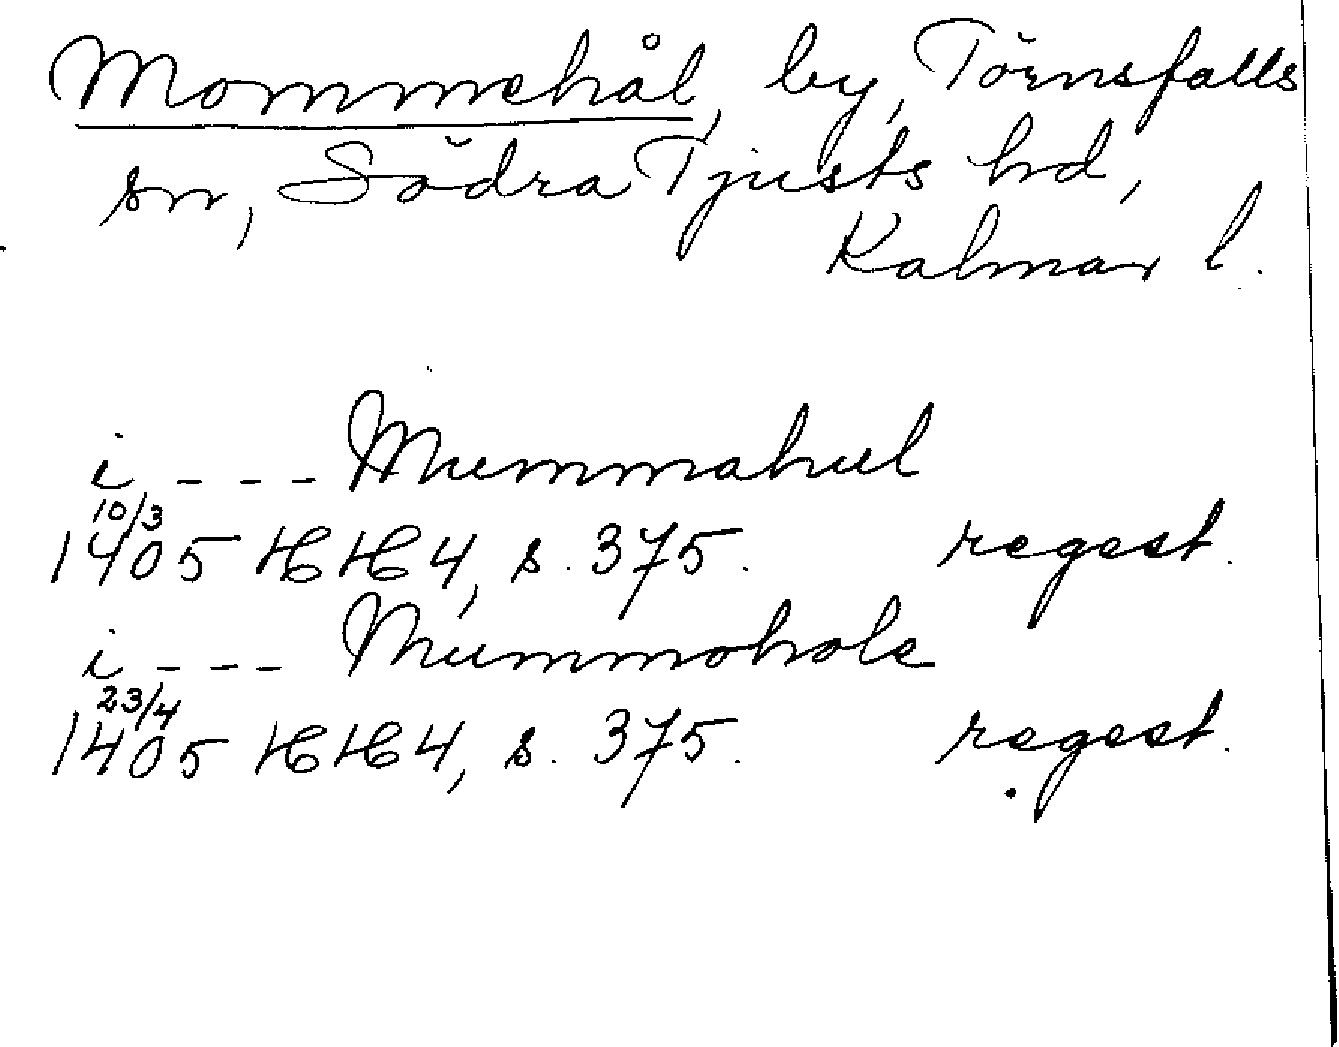 Mommehål, by, Törnsfalls
sn, Södra Tjusts hd,
Kalmar l.
i - - - Mummahul
10/3
1405 HH 4, s. 375. regest.
i - - - Mummohole
23/4
1405 HH 4, s. 375. regest.